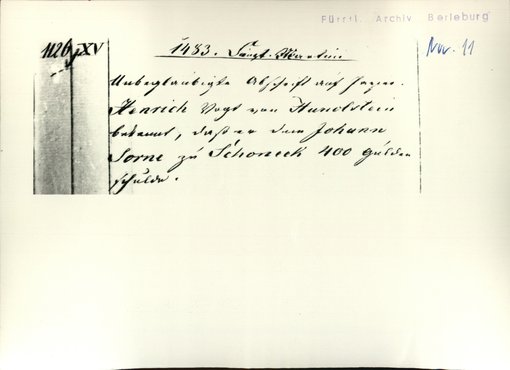 Fürstl. Archiv Berleburg
1126, XV
1483. Sanct. Martini
Nov. 11
Unbeglaubigte Abschrift auf Papier.
Henrich Vogt von Hundstein
bekennt, daß er dem Johann
Sorne zu Schoneck 400 gulden
schulde.